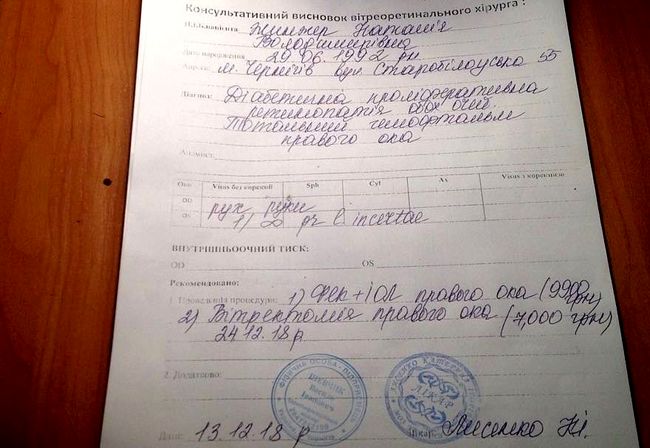 Консультативний висновок вітреоретинального хірурга :
П.І.Б.пацієнта Наталія
Володимирівна
Дата народження 29.06.1992 рн
Адреса м. Чернігів вул Старобілоуська 55
Діагноз: Діабетична проліферативна
ретинопатія обох очей.
Тотальний гемофтальм
правого ока
Анамнез:
Око Visus без корекції Sph Cyl Ax Visus з корекцією
OD рух руки
OS 1/∞ pr l incertae
ВНУТРІШНЬООЧНИЙ ТИСК:
OD OS
Рекомендовано:
1. Проведення процедури: 1) ФЕК+ІОЛ правого ока (9900 грн)
2) Вітректомія правого ока (7,000 грн)
24.12.18 р
2. Додатково:
ФІЗИЧНА ОСОБА - ПІДПРИЄМЕЦЬ
ЛІКАР
Дата: 13.12.18 р Лікар Лисенко